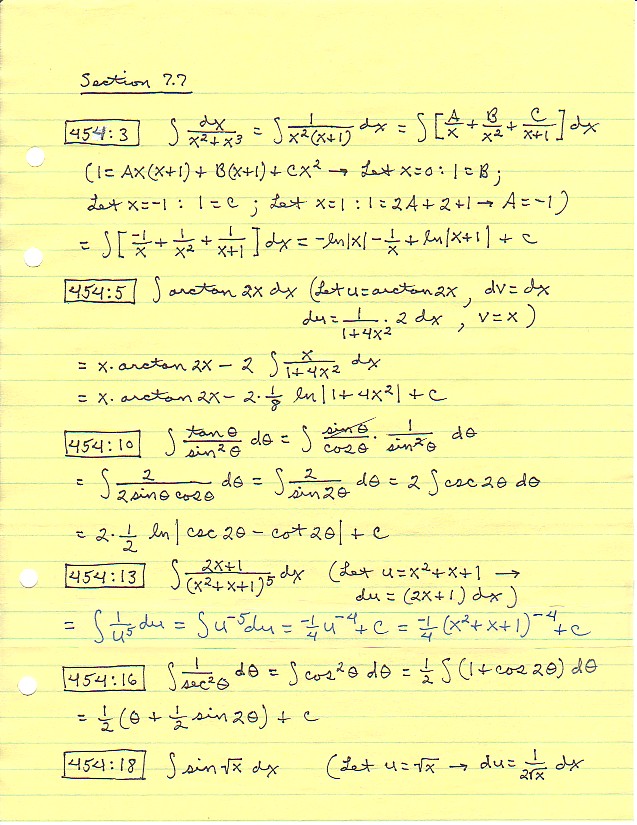 Section 7.7
454:3 ∫ dx/(x²+x³) = ∫ 1/(x²(x+1)) dx = ∫ [A/x + B/x² + C/(x+1)] dx
(1 = Ax(x+1) + B(x+1) + Cx² → Let x=0 : 1=B ;
Let x=-1 : 1=C ; Let x=1 : 1=2A+2+1 → A=-1)
= ∫ [-1/x + 1/x² + 1/(x+1)] dx = -ln|x| - 1/x + ln|x+1| + C
454:5 ∫ arctan 2x dx (Let u=arctan 2x , dv=dx
du = 1/(1+4x²) · 2 dx , v=x )
= x·arctan 2x - 2 ∫ x/(1+4x²) dx
= x·arctan 2x - 2·1/8 ln|1+4x²| + C
454:10 ∫ tanθ/sin²θ dθ = ∫ sinθ/cosθ · 1/sin²θ dθ
= ∫ 2/(2sinθ cosθ) dθ = ∫ 2/sin2θ dθ = 2 ∫ csc 2θ dθ
= 2·1/2 ln|csc 2θ - cot 2θ| + C
454:13 ∫ (2x+1)/(x²+x+1)⁵ dx (Let u = x²+x+1 →
du = (2x+1) dx )
= ∫ 1/u⁵ du = ∫ u⁻⁵ du = -1/4 u⁻⁴ + C = -1/4 (x²+x+1)⁻⁴ + C
454:16 ∫ 1/sec²θ dθ = ∫ cos²θ dθ = 1/2 ∫ (1+cos 2θ) dθ
= 1/2 (θ + 1/2 sin 2θ) + C
454:18 ∫ sin√x dx (Let u=√x → du = 1/(2√x) dx